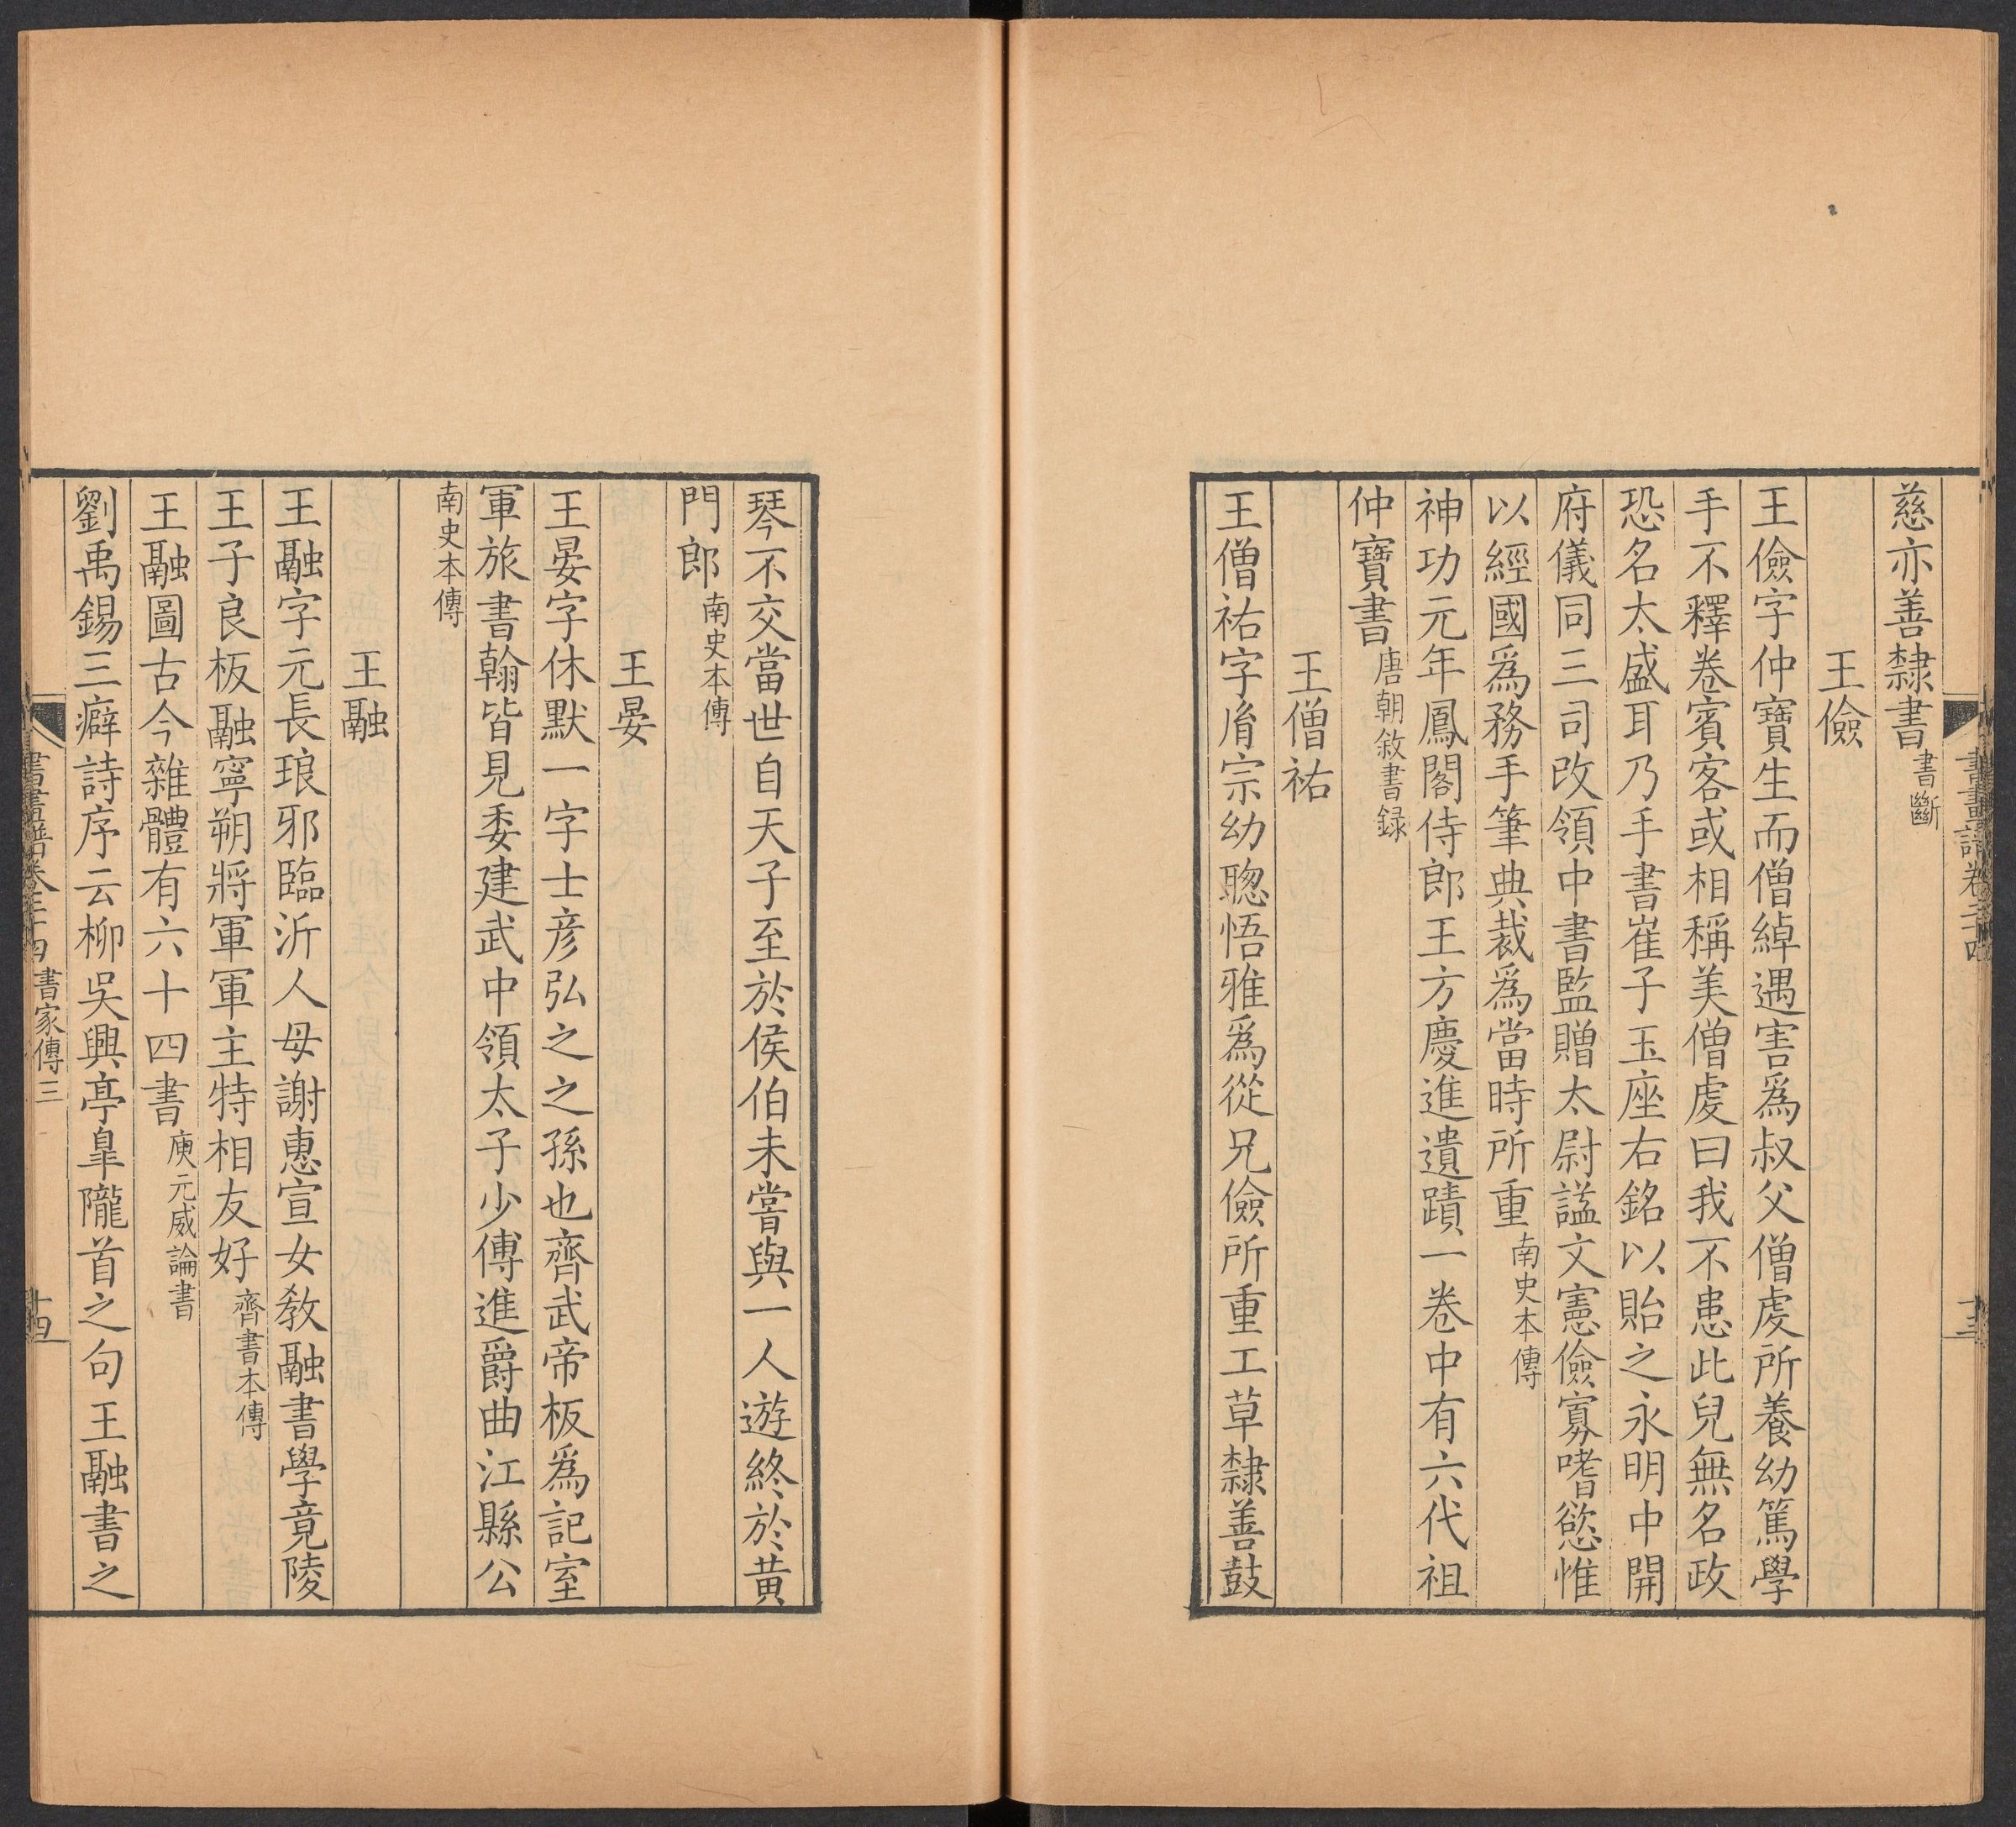 慈亦善隸書書斷
王儉
王儉字仲寶生而僧綽遇害爲叔父僧虔所養幼篤學
手不釋卷賓客或相稱美僧虔曰我不患此兒無名政
恐名太盛耳乃手書崔子玉座右銘以貽之永明中開
府儀同三司改領中書監贈太尉謚文憲儉寡嗜慾惟
以經國爲務手筆典裁爲當時所重南史本傳
神功元年鳳閣侍郎王方慶進遺蹟一卷中有六代祖
仲寶書唐朝敘書録
王僧祐
王僧祐字胤宗幼聰悟雅爲從兄儉所重工草隸善鼓
琴不交當世自天子至於侯伯未嘗與一人遊終於黄
門郎南史本傳
王晏
王晏字休默一字士彦弘之之孫也齊武帝板爲記室
軍旅書翰皆見委建武中領太子少傅進爵曲江縣公
南史本傳
王融
王融字元長琅邪臨沂人母謝惠宣女敎融書學竟陵
王子良板融寧朔將軍軍主特相友好齊書本傳
王融圖古今雜體有六十四書庾元威論書
劉禹錫三癖詩序云柳吳興亭皐隴首之句王融書之
書畫譜卷二十四 書家傳三 十四